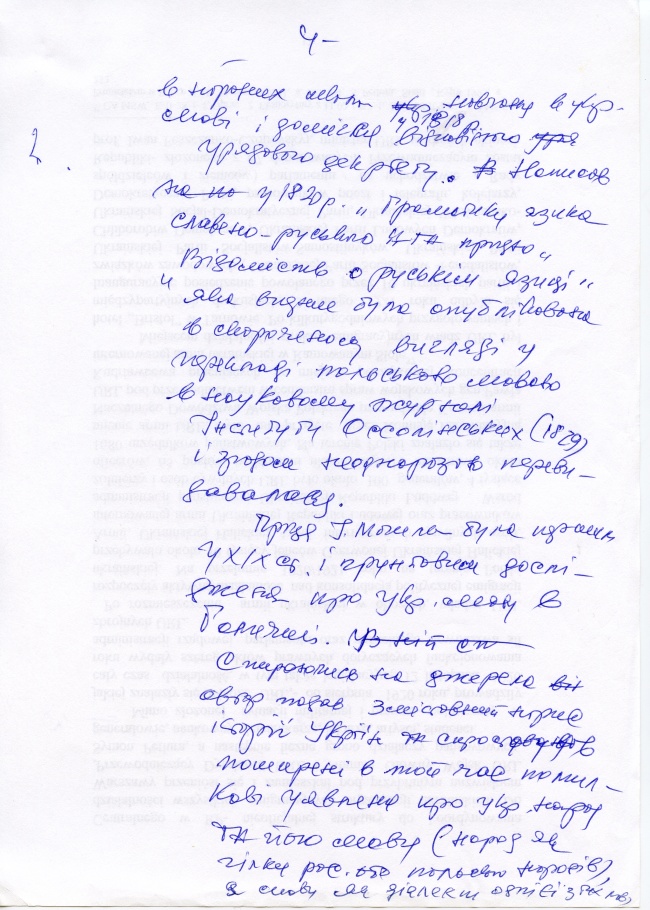 4-
в народних школ навчання в укр.
1818 р.
2.
мові і домігся відповідного
урядового декрету. Написав
у 1820 р. "Граматику язика
славено-руського та працю "
Відомість о руськім язиці"
яка видже була опублікована
в скороченому вигляді у
перекладі польською мовою
в науковому журналі
Інституту Оссолінських (1829)
і згодом неодноразово переви-
давалась.
Праця І. Могильн була першим
у ХІХ ст. і грунтовним дослі-
дження про укр. мову в
Галичині. В ній оп
Спираючись на джерела він
автор подав змістовний нарис
історії України спростовував
поширені в той час помил-
кові уявлення про укр. народ
та його мову (народ як
гілку рос. або польського народів),
а мову як діалект однієї з їх мов)